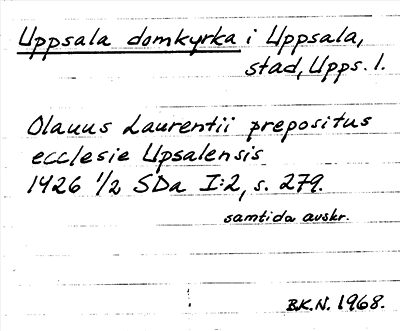 Uppsala domkyrka i Uppsala,
stad, Upps. l.
Olauus Laurentii prepositus
ecclesie Upsalensis
1426 1/2 SDa I:2, s. 279.
samtida avskr.
B.K.N. 1968.